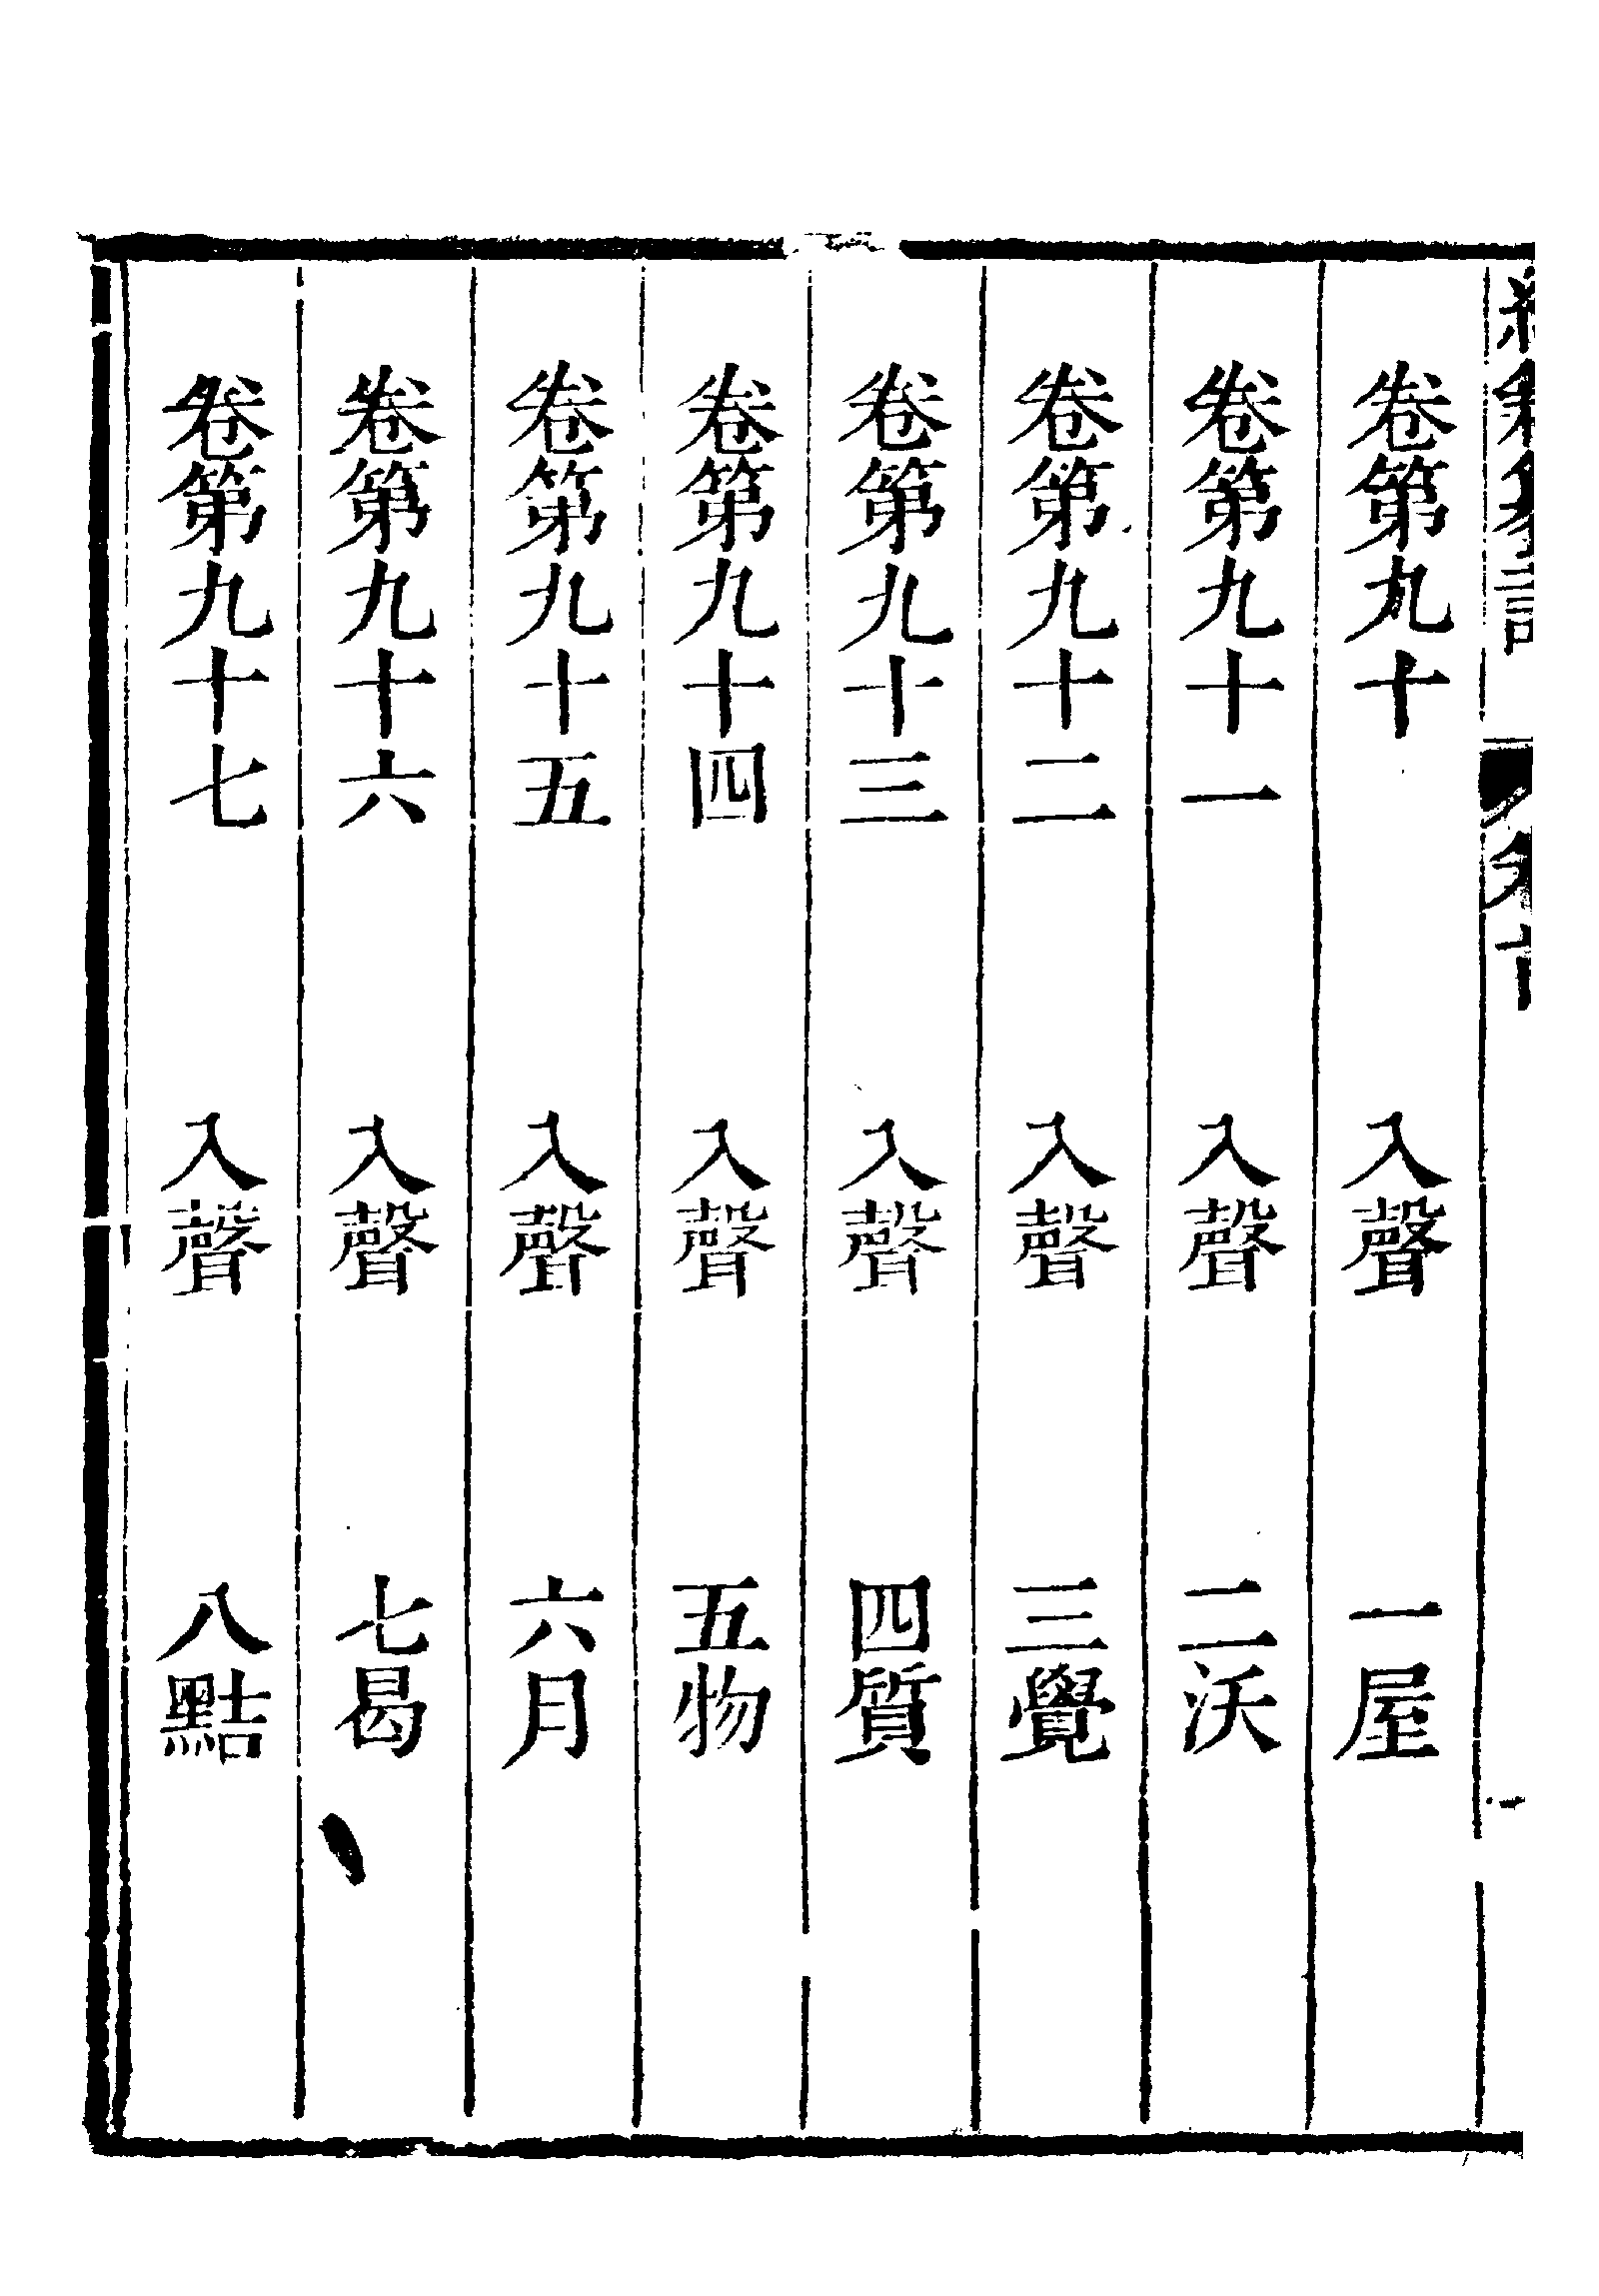 卷第九十 入聲 一屋
卷第九十一 入聲 二沃
卷第九十二 入聲 三覺
卷第九十三 入聲 四質
卷第九十四 入聲 五物
卷第九十五 入聲 六月
卷第九十六 入聲 七曷
卷第九十七 入聲 八黠